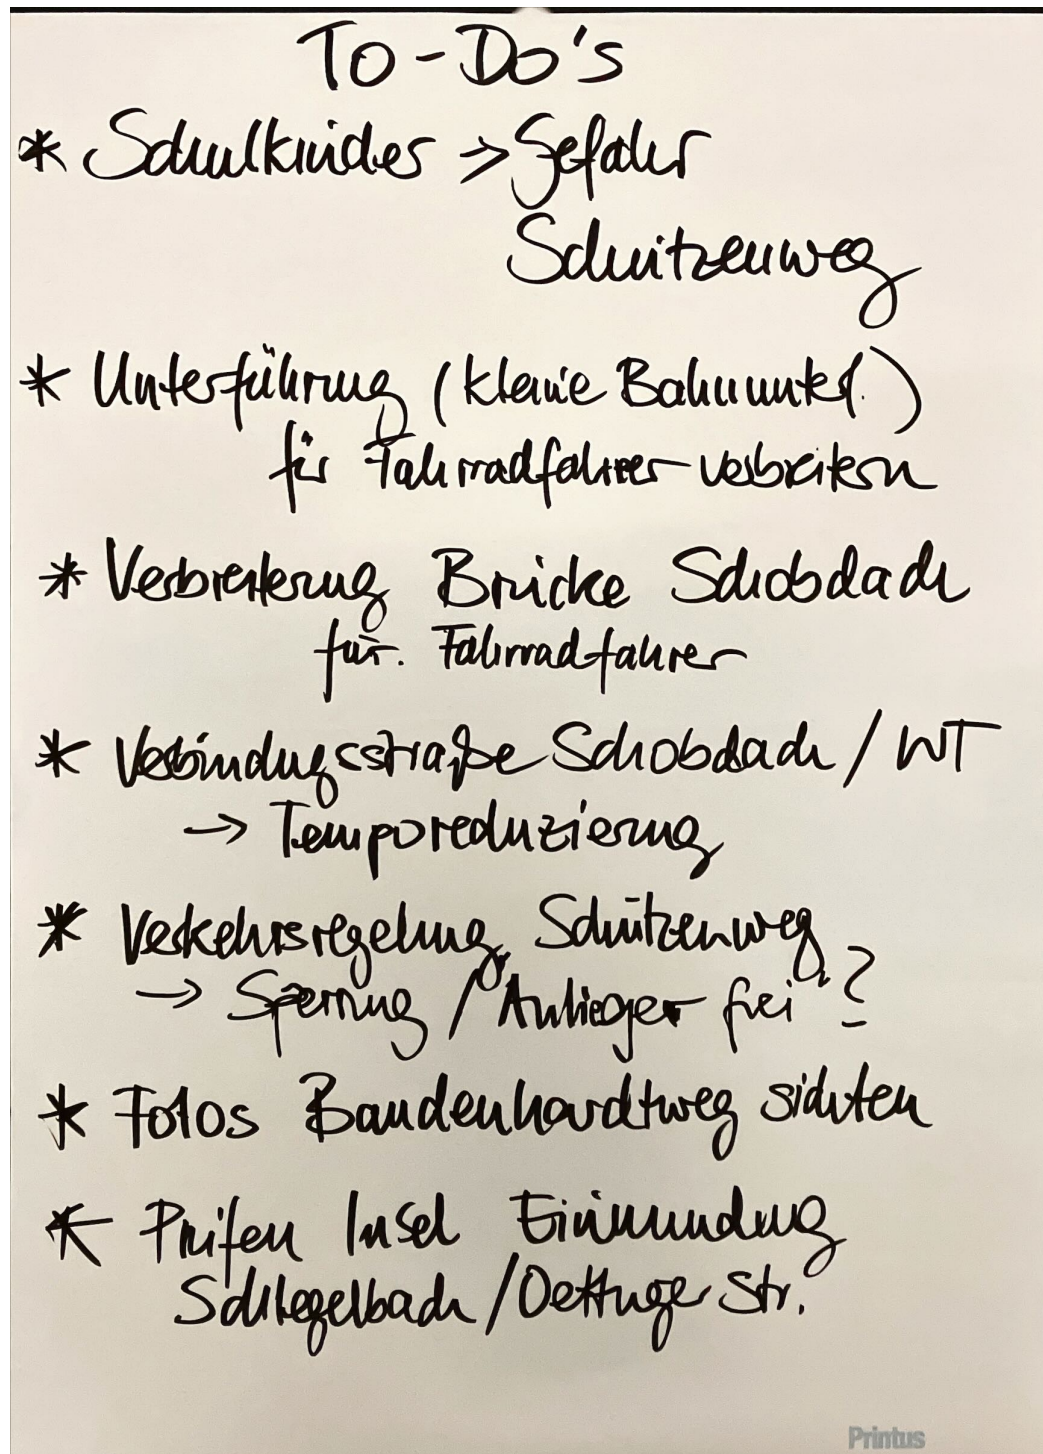 To-Do's
* Schulkinder -> Gefahr
Schützenweg
* Unterführung (kleine Bahnunterf.)
für Fahrradfahrer verbreitern
* Verbreiterung Brücke Schobdach
für Fahrradfahrer
* Verbindungsstraße Schobdach / WT
→ Temporeduzierung
* Verkehrsregelung Schützenweg
→ Sperrung / "Anlieger frei"?
* Fotos Baudenhardtweg sichten
* Prüfen Insel Einmündung
Schlegelbach / Oettinger Str.
Printus